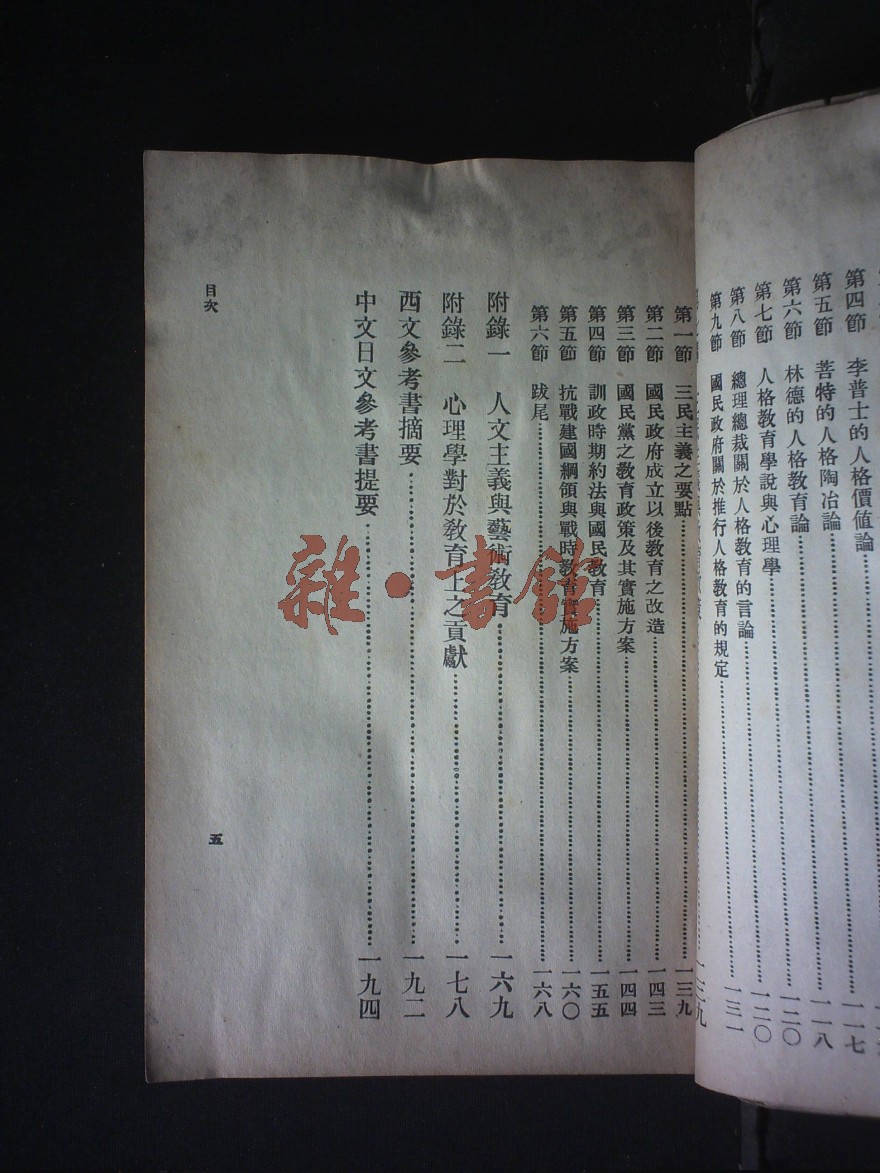 第四節 李普士的人格價値論……一一七
第五節 菩特的人格陶冶論……一一八
第六節 林德的人格教育論……一二〇
第七節 人格教育學說與心理學……一二〇
第八節 總理總裁關於人格教育的言論……一三一
第九節 國民政府關於推行人格教育的規定……
一三九
第一節 三民主義之要點……一三九
第二節 國民政府成立以後教育之改造……一四三
第三節 國民黨之教育政策及其實施方案……一四四
第四節 訓政時期約法與國民教育……一五五
第五節 抗戰建國綱領與戰時教育實施方案……一六〇
第六節 跋尾……一六八
附錄一 人文主義與藝術教育……一六九
附錄二 心理學對於教育上之貢獻……一七八
西文參考書摘要……一九二
中文日文參考書提要……一九四
目次
五
雜·書館